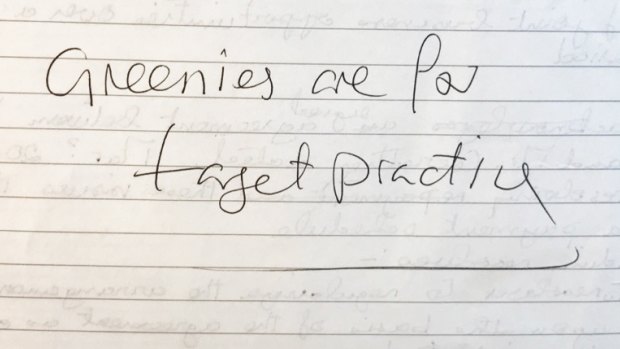 Greenies are for
target practice